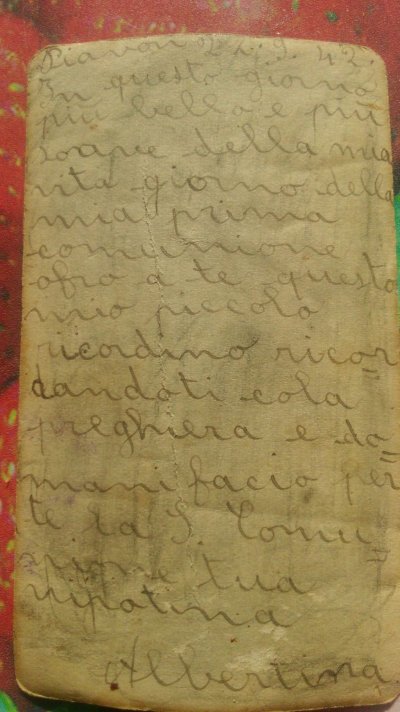 Piavon 24.9.42.
In questo giorno
piu bello e piu
soave della mia
vita giorno della
mia prima
comunione
ofro a te questo
mio piccolo
ricordino ricor=
dandoti cola
preghiera e do=
mani facio per
te la S. Comu=
nione tua
nipotina
Albertina